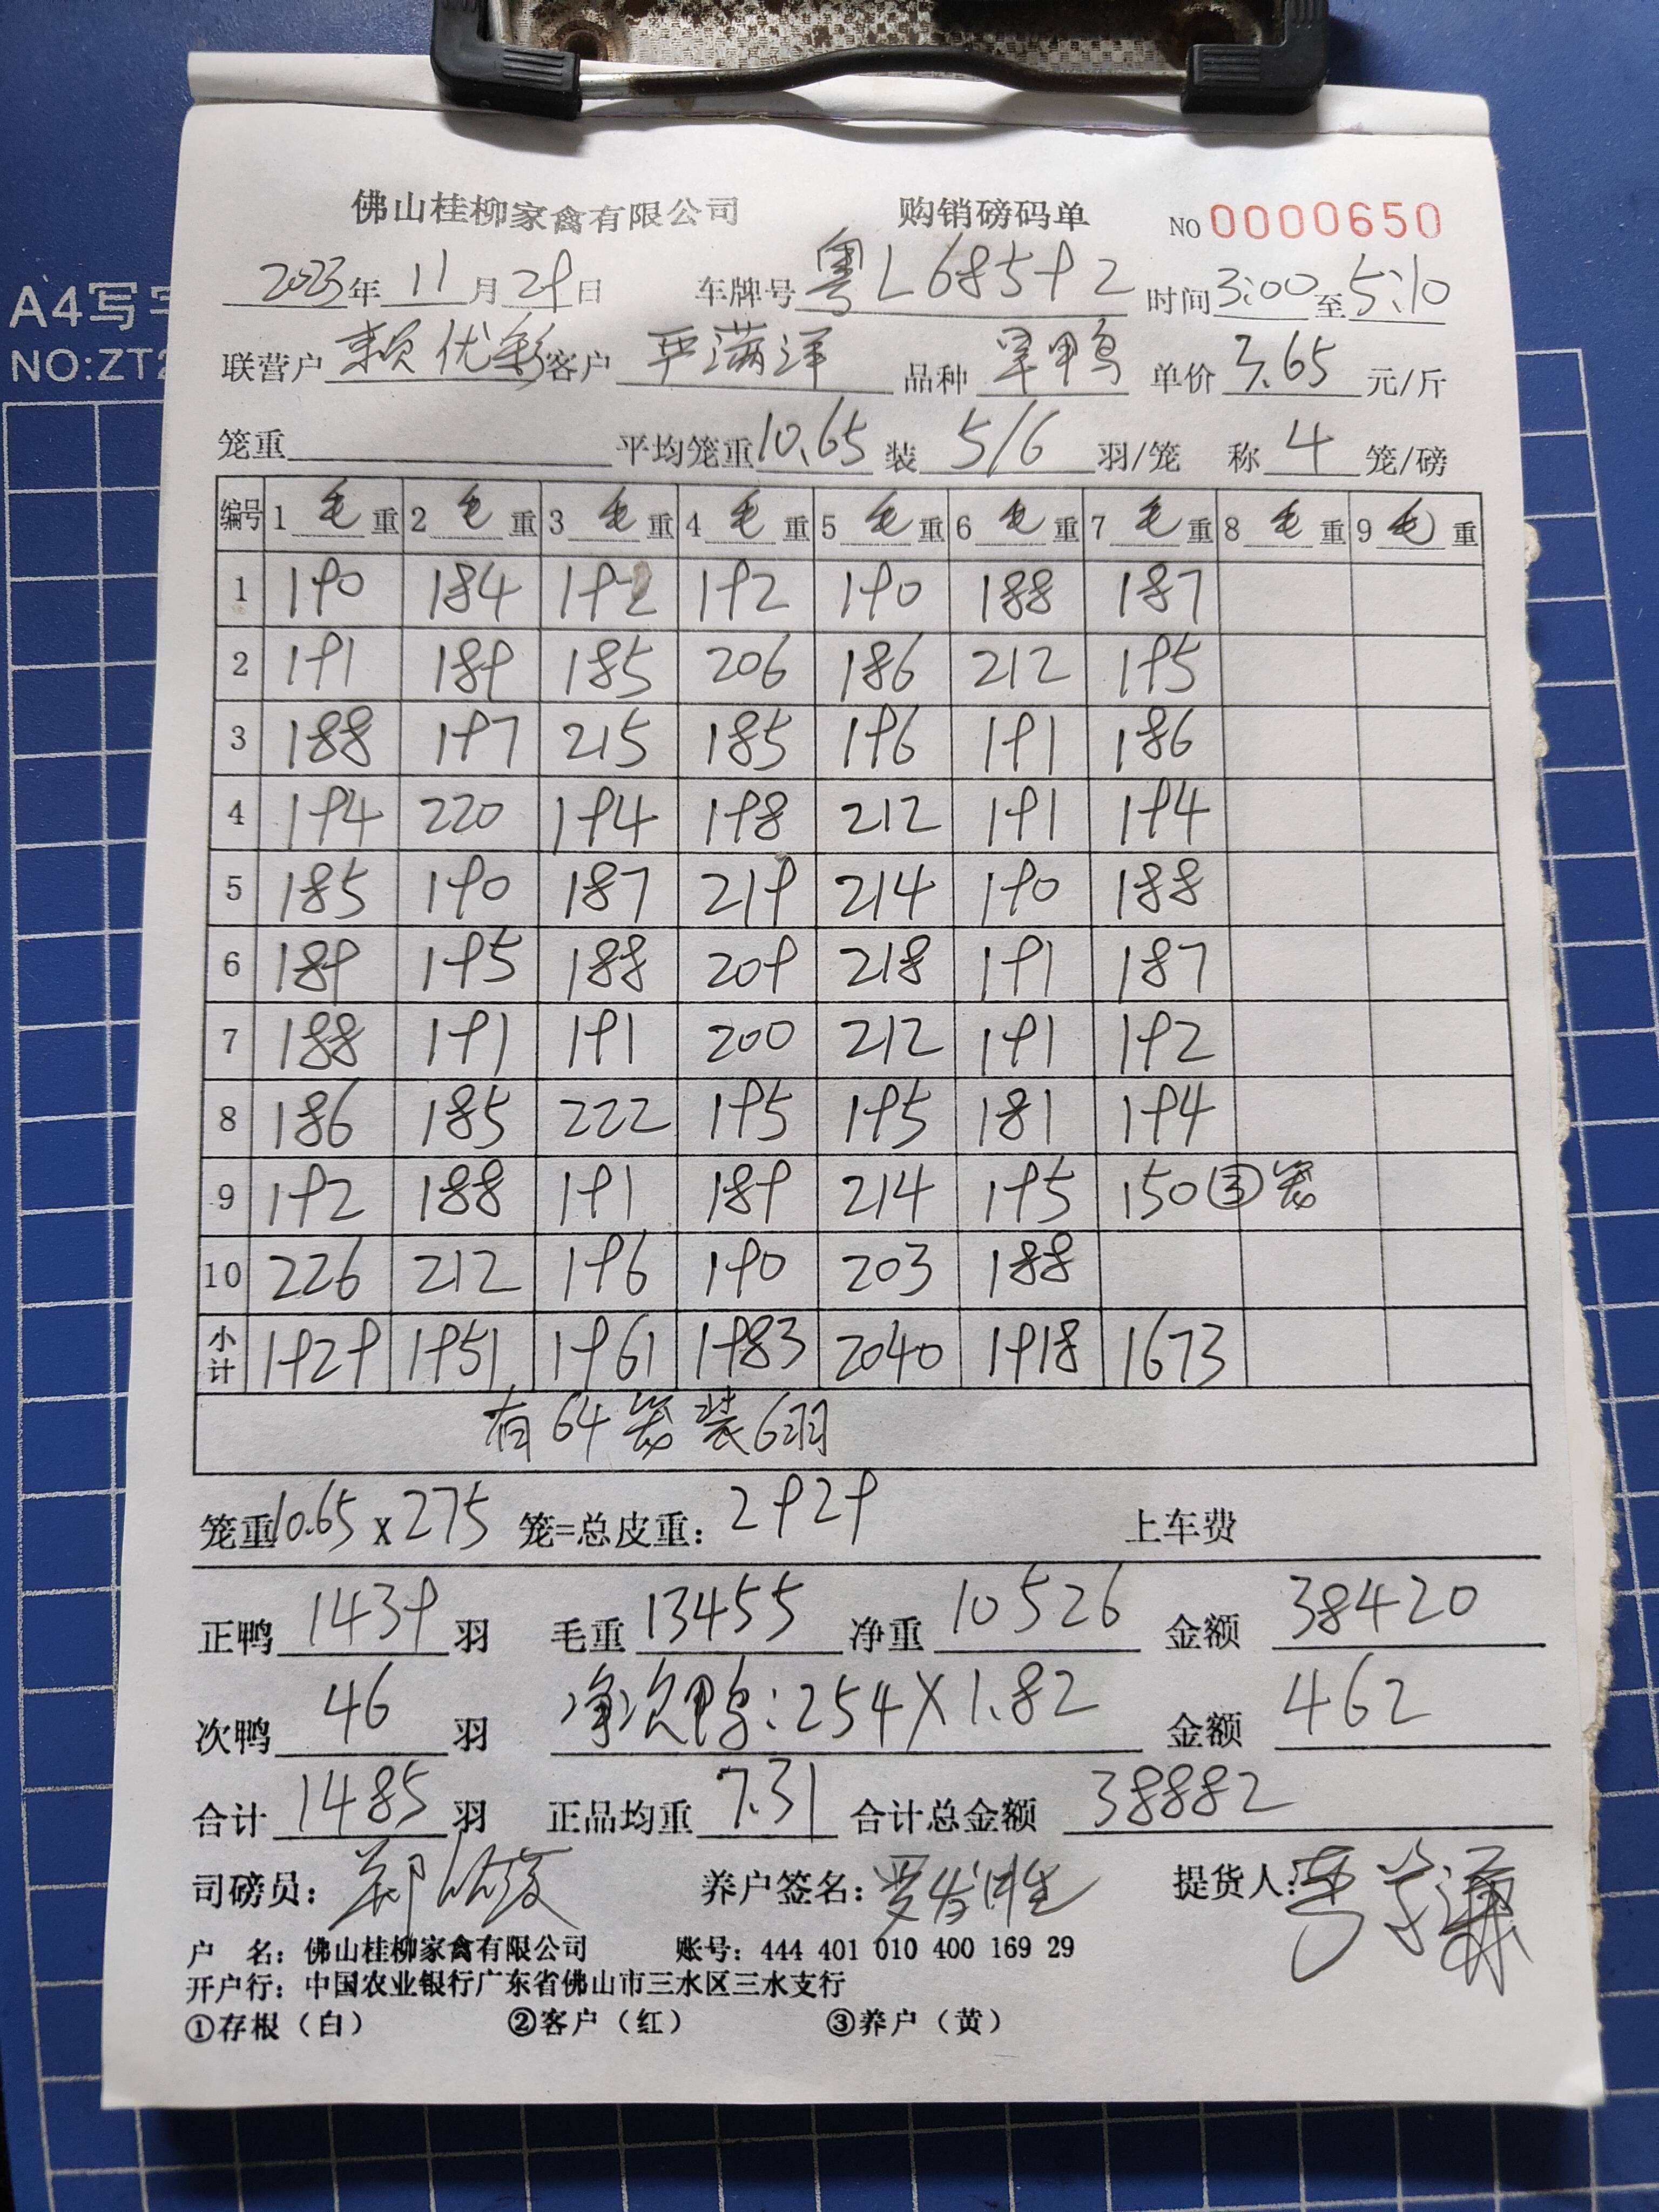 A4写字
NO:ZT2
佛山桂柳家禽有限公司 购销磅码单 NO 0000650
2023年 11月 29日 车牌号 粤L68592 时间 3:00 至 5:10
联营户 赖优彩 客户 严满洋 品种 旱鸭 单价 3.65 元/斤
笼重 平均笼重 10.65 装 5/6 羽/笼 称 4 笼/磅
编号 1 毛 重 2 毛 重 3 毛 重 4 毛 重 5 毛 重 6 毛 重 7 毛 重 8 毛 重 9 毛 重
1 190 184 192 192 190 188 187
2 191 189 185 206 186 212 195
3 188 197 215 185 196 191 186
4 194 220 194 198 212 191 194
5 185 190 187 219 214 190 188
6 189 195 188 209 218 191 187
7 188 191 191 200 212 191 192
8 186 185 222 195 195 181 194
9 192 188 191 189 214 195 150 ③笼
10 226 212 196 190 203 188
小计 1929 1951 1961 1983 2040 1918 1673
有64笼装6羽
笼重 10.65 x 275 笼=总皮重: 2929 上车费
正鸭 1439 羽 毛重 13455 净重 10526 金额 38420
次鸭 46 羽 净次鸭:254X1.82 金额 462
合计 1485 羽 正品均重 7.31 合计总金额 38882
司磅员: 养户签名: 提货人:
户 名: 佛山桂柳家禽有限公司 账号: 444 401 010 400 169 29
开户行: 中国农业银行广东省佛山市三水区三水支行
①存根（白） ②客户（红） ③养户（黄）